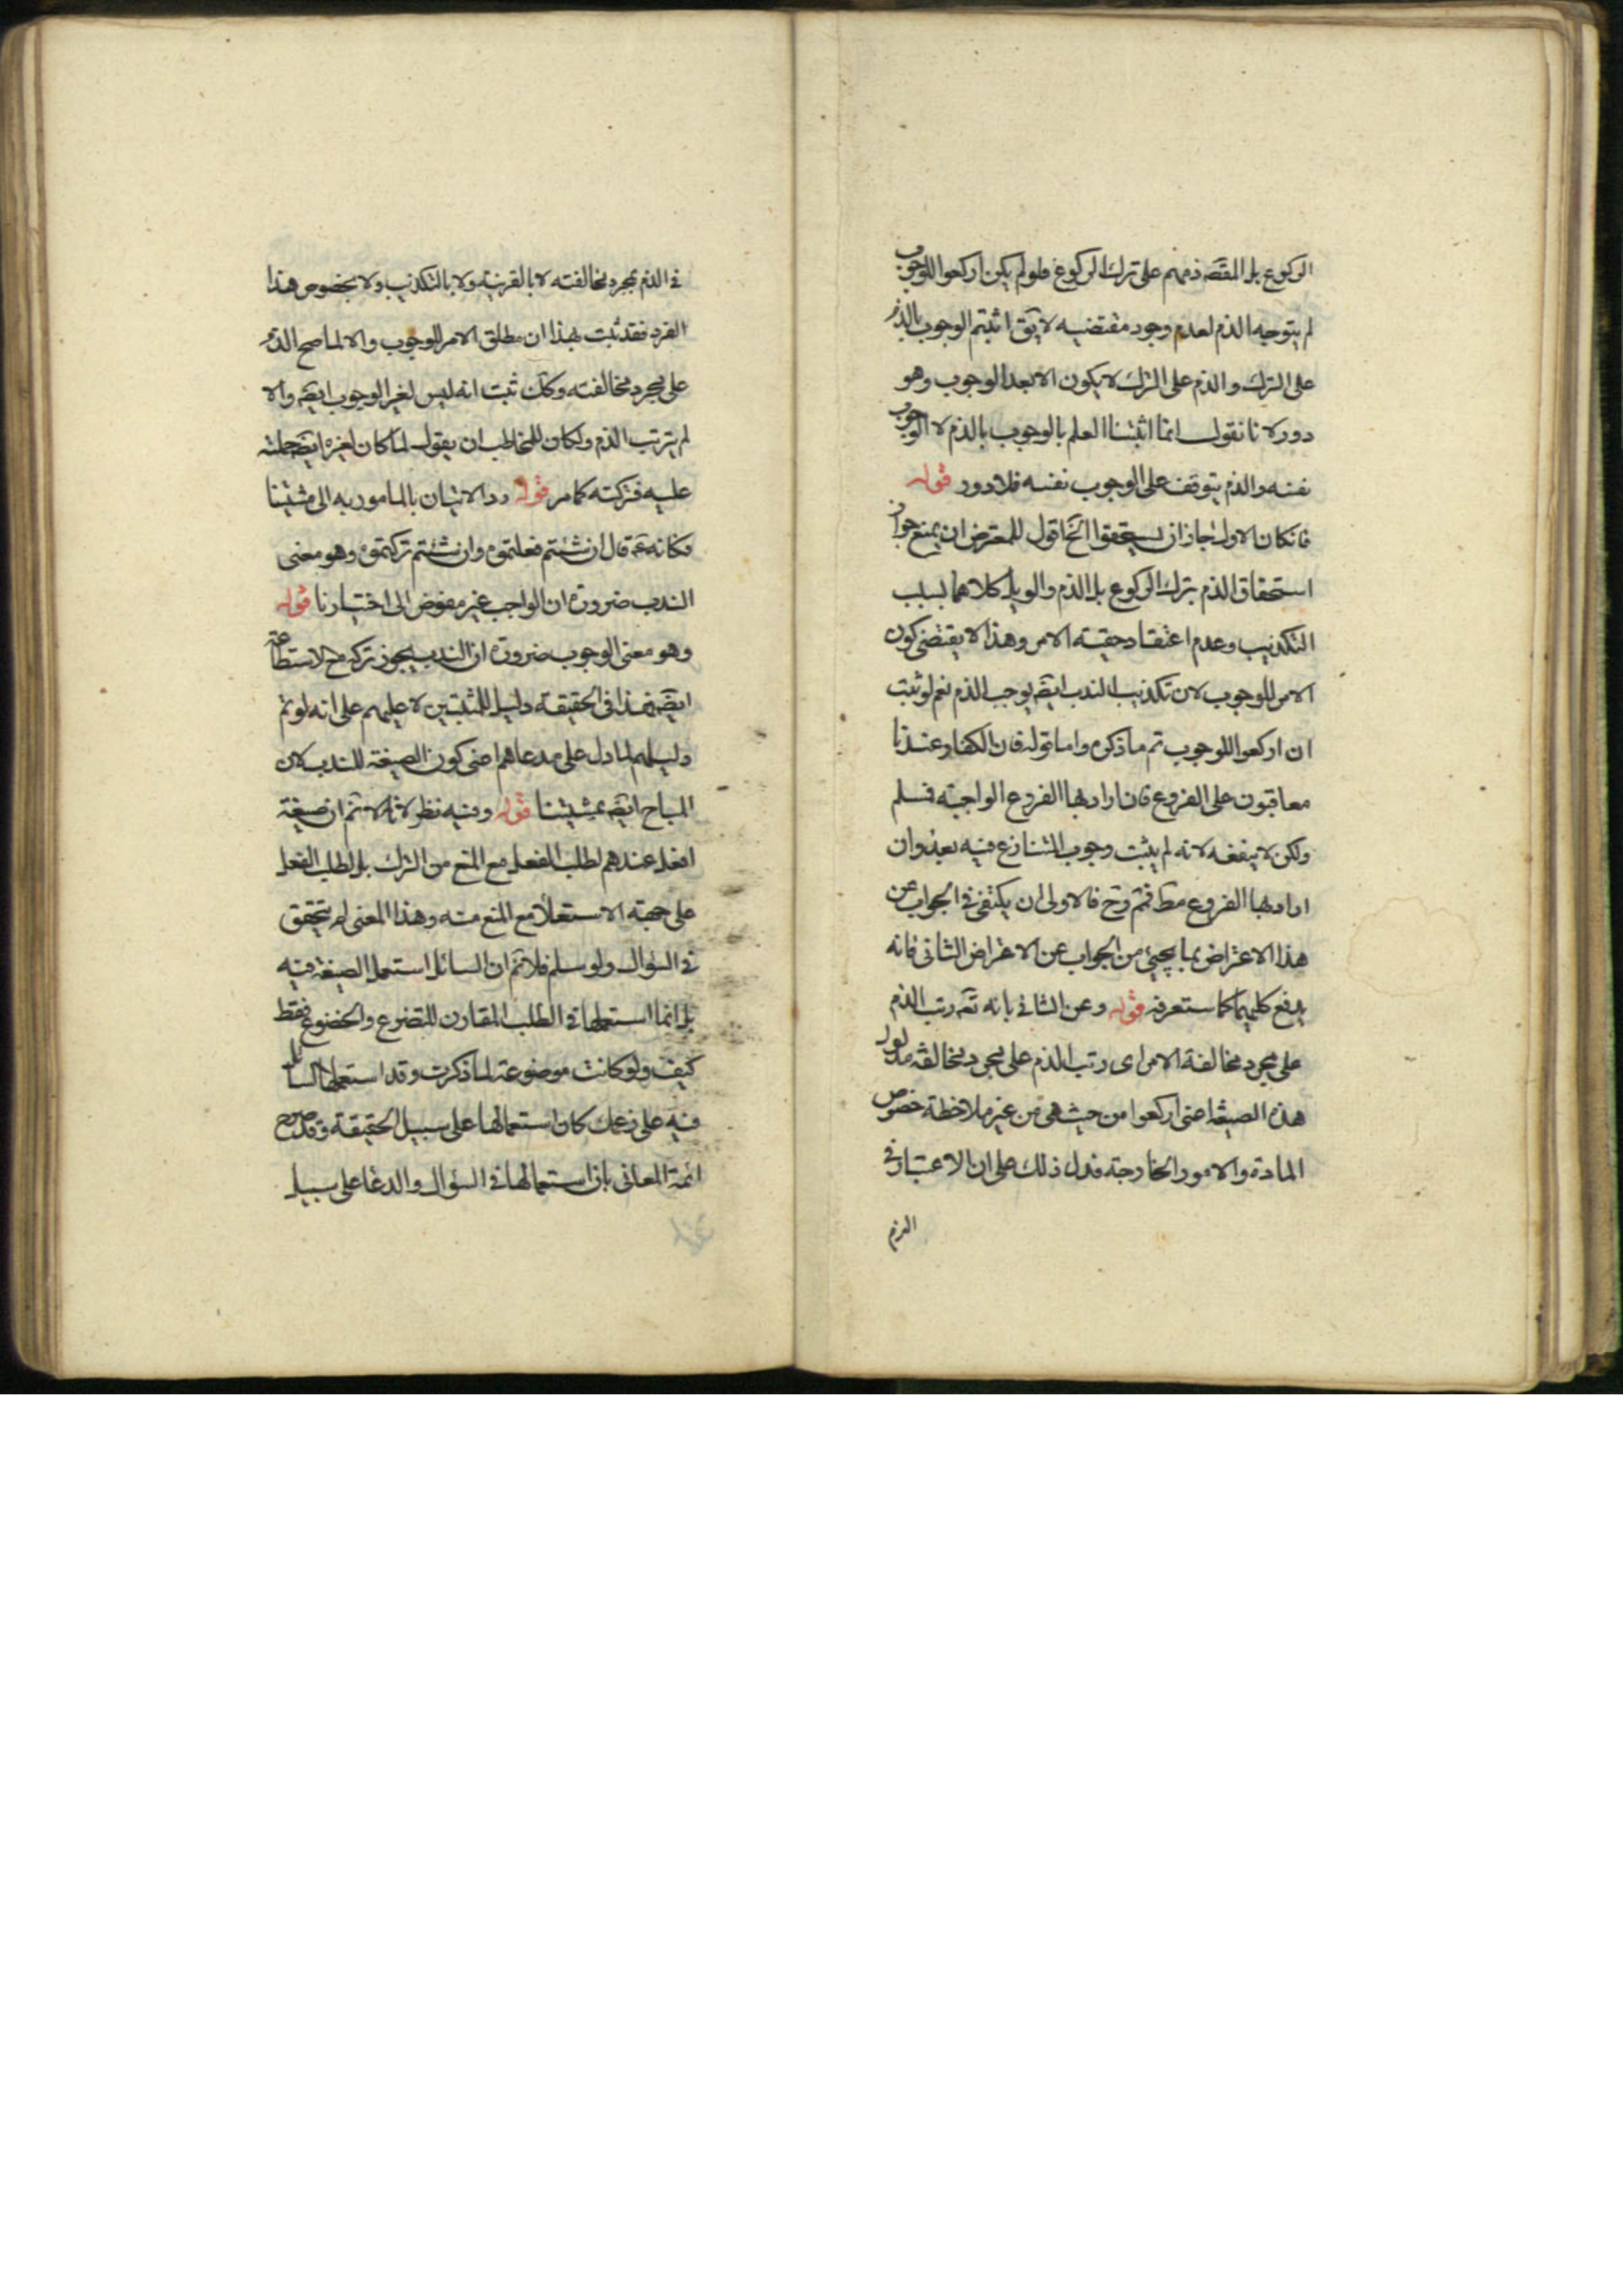 الركوع بل المقصد ذمهم على ترك الركوع فلو لم يكن اركعوا للوجوب
لم يتوجه الذم لعدم وجود مقتضيه لا يق اثبتم الوجوب بالذم
على الترك والذم على الترك لا يكون الا بعد الوجوب وهو
دور لانا نقول انما اثبتنا العلم بالوجوب بالذم لا الوجوب
نفسه والذم يتوقف على الوجوب نفسه فلا دور قوله
فانكان الاول جاز ان يستحقوا الخ اقول للمعترض ان يمنع جواز
استحقاق الذم بترك الركوع بل الذم والويل كلاهما بسبب
التكذيب وعدم اعتقاد حقيته الامر وهذا لا يقتضى كون
الامر للوجوب لان تكذيب الندب ايضه يوجب الذم نعم لو ثبت
ان اركعوا للوجوب تم ما ذكره واما قوله فان الكفار عندنا
معاقبون على الفروع فان اراد بها الفروع الواجبة فسلم
ولكن لا ينفعه لانه لم يثبت وجوب المتنازع فيه بعد وان
اراد بها الفروع مط فمم وح فالاولى ان يكتفى فى الجواب عن
هذا الاعتراض بما يجيئ من الجواب عن الاعتراض الثانى فانه
يدفع كليهما كما ستعرفه قوله وعن الثانى بانه تعه رتب الذم
على مجرد مخالفة الامر اى رتب الذم على مجرد مخالفة مدلول
هذه الصيغة اعنى اركعوا من حيث هى من غير ملاحظة خصوص
المادة والامور الخارجة فدل ذلك على ان الاعتبار فى
الذم
فى الذم بمجرد مخالفته لا بالقرينة ولا بالتكذيب ولا بخصوص هذا
الفرد فقد ثبت بهذا ان مطلق الامر للوجوب والا لما صح الذم
على مجرد مخالفته وكك ثبت انه ليس لغير الوجوب ايضه والا
لم يترتب الذم ولكان للمخاطب ان يقول لما كان لغيره ايضه حملته
عليه فتركته كما مر قوله رد الاتيان بالمامور به الى مشيتنا
فكانه عه قال ان شئتم فعلتموه وان شئتم تركتموه وهو معنى
الندب ضرورة ان الواجب غير مفوض الى اختيارنا قوله
وهو معنى الوجوب ضرورة ان الندب يجوز تركه مع الاستطاعة
ايضه فهذا فى الحقيقة دليل للمثبتين لا عليهم على انه لو تم
دليلهم لما دل على مدعاهم اعنى كون الصيغة للندب لان
المباح ايضه بمشيتنا قوله وفيه نظر لانا لا نم ان صيغة
افعل عندهم لطلب الفعل مع المنع من الترك بل لطلب الفعل
على جهة الاستعلاء مع المنع منه وهذا المعنى لم يتحقق
فى السؤال ولو سلم فلا نم ان السائل استعمل الصيغة فيه
بل انما استعملها فى الطلب المقارن للتضرع والخضوع فقط
كيف ولو كانت موضوعة لما ذكرت وقد استعملها السائل
فيه على زعمك كان استعمالها على سبيل الحقيقة وقد صرح
ائمة المعانى بان استعمالها فى السؤال والدعا على سبيل